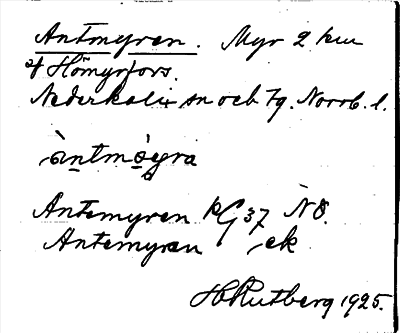 Antmyren. Myr 2 km
Hömyrfors.
Nederkalix sn och tg. Norrb. l.
àntmǫ̀yra
Antemyren kG 37 N8.
Antemyren , ek
H Rutberg 1925.